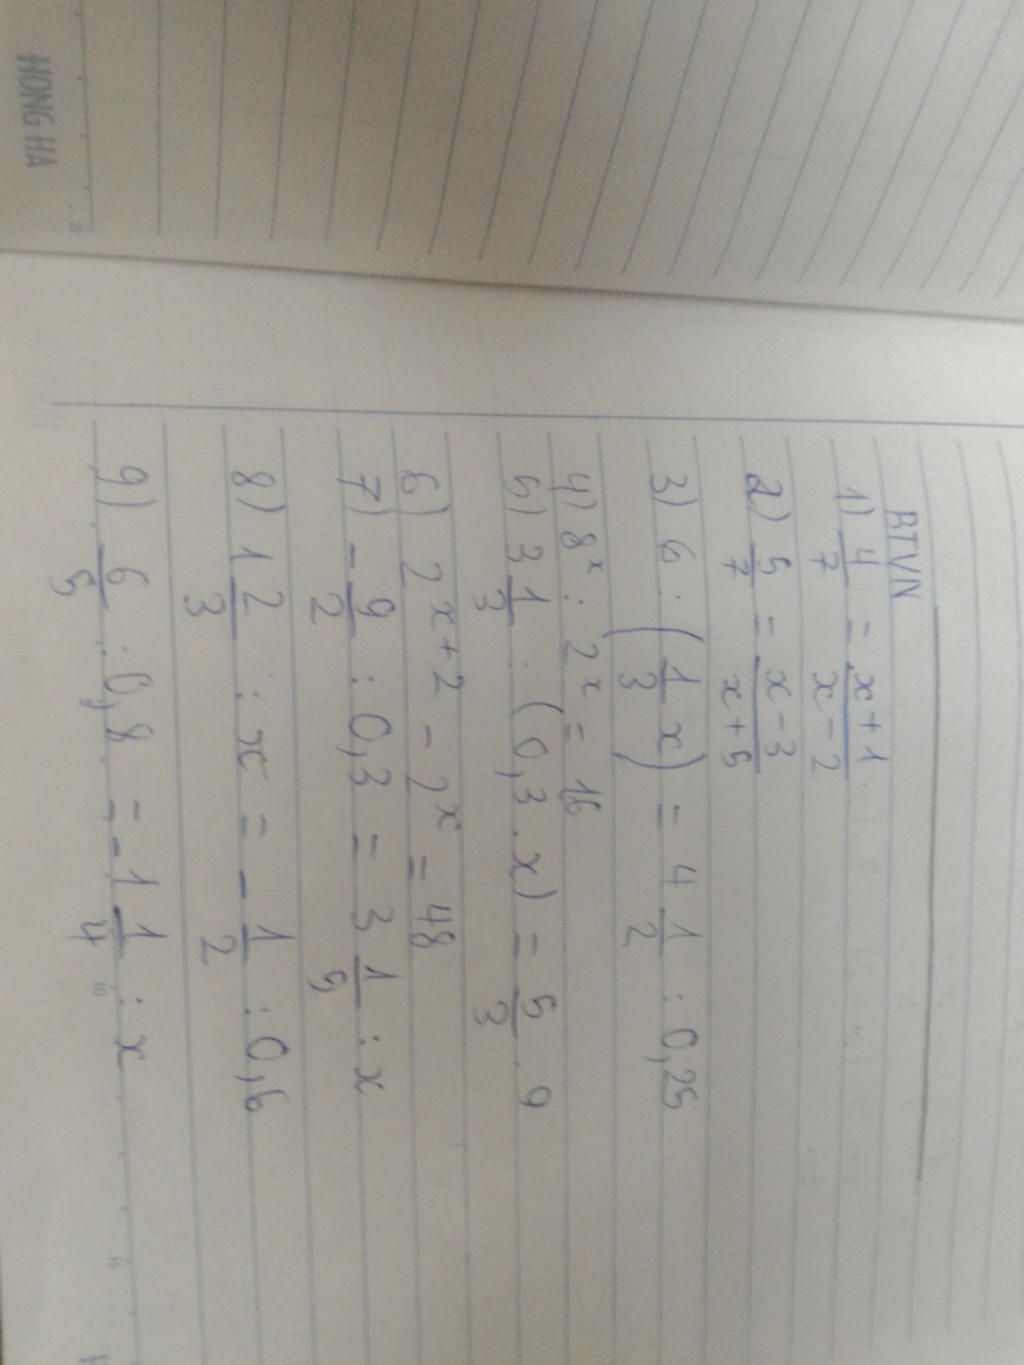 HONG HA
BTVN
1) 4/7 = x+1/x-2
2) 5/7 = x-3/x+5
3) 6 : (1/3 x) = 4 1/2 : 0,25
4) 8^x : 2^x = 16
5) 3 1/3 : (0,3 . x) = 5/3 . 9
6) 2^x+2 - 2^x = 48
7) -9/2 : 0,3 = 3 1/5 : x
8) 1 2/3 : x = -1/2 : 0,6
9) 6/5 : 0,8 = -1 1/4 : x